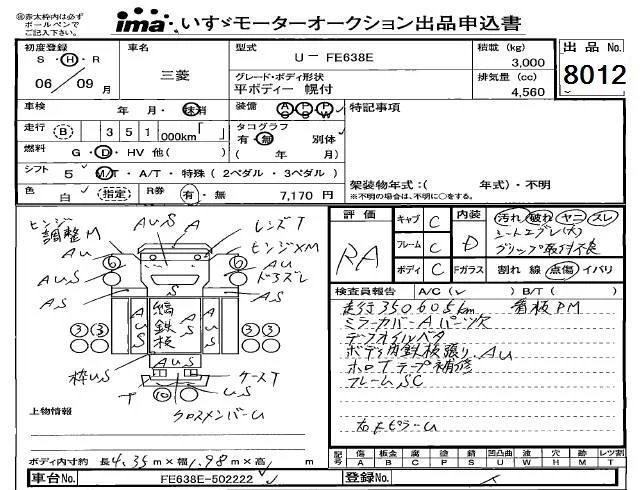 ※赤太枠内は必ず
ボールペンで
ご記入下さい。
ima いすゞモーターオークション出品申込書
初度登録
S・H・R
06/09月
車名
三菱
型式
U-FE638E
グレード・ボディ形状
平ボディー 幌付
積載 (kg)
3,000
排気量 (cc)
4,560
出品No.
8012
車検 年 月・抹消
装備 AC PS PW
特記事項
走行 B 351,000km「 」
タコグラフ
有・無 別体
( 年 月)
燃料 G・D・HV 他( )
シフト 5 M/T・A/T・特殊(2ペダル・3ペダル)
色 白 (指定)
R券 有・無 7,170円
架装物年式:( 年式)・不明
※不明の場合は、不明に○をする。
ヒンジ
調整M
AUS
A
レンズT
ヒンジXM
AU
AU
ドアズレ
AUS
AS
AS
S
AUS
縞鉄板
AUS
AUS
枠US
ケースT
T
US
クロスメンバーU
上物情報
ボディ内寸約 長4.35m×幅1.98m×高 m
評価
RA
キャブ C
フレーム C
ボディ C
内装 D
Fガラス
汚れ 破れ ヤニ スレ
シートエプレ(大)
グリップ取付不良
割れ 線 点傷 イバリ
検査員報告 A/C(✓) B/T( )
走行350605km 看板PM
ミラーカバーAパーツ欠
ボディ内鉄板張り、AU
ホロTテープ補修
フレームSC
右FピラーU
記号
傷 A
凹 B
腐 C
塗 P
錆 S
凹凸曲 U
波 W
穴 H
跡 M
レツ割 T
車台No. FE638E-502222
登録No.